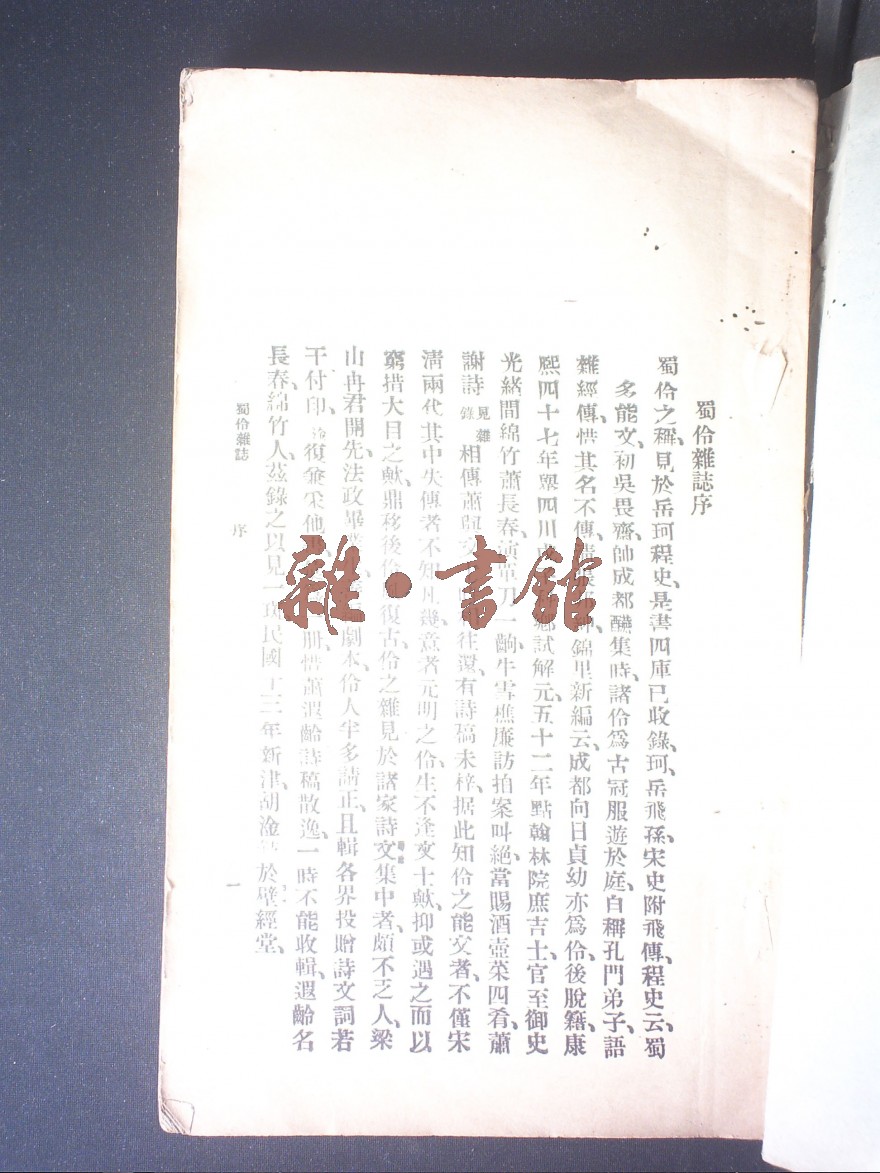 蜀伶雜誌序
蜀伶之稱、見於岳珂程史、是書四庫已收錄、珂、岳飛孫、宋史附飛傳、程史云、蜀
多能文、初吳畏齋帥成都醼集時、諸伶爲古冠服遊於庭、自稱孔門弟子、語
雜經傳、惜其名不傳、錦里新編云、成都向日貞幼亦爲伶、後脫籍、康
熙四十七年舉四川鄉試解元、五十二年點翰林院庶吉士、官至御史
光緒間綿竹蕭長春、演單刀一齣、牛雪樵廉訪拍案叫絕、當賜酒壺菜四肴、蕭
謝詩 見雜錄 相傳蕭與往還、有詩稿未梓、据此知伶之能文者、不僅宋
淸兩代其中失傳者不知凡幾、意者元明之伶、生不逢文士歟、抑或遇之而以
窮措大目之歟、鼎移後復古、伶之雜見於諸家詩文集中者、頗不乏人、梁
山冉君開先、法政畢劇本、伶人半多請正、且輯各界投贈詩文詞若
干付印、復兼采他冊、惜蕭遐齡詩稿散逸、一時不能收輯、遐齡名
長春、綿竹人、茲錄之以見一斑、民國十三年新津、胡淦於壁經堂、
蜀伶雜誌 序 一
雜·書館